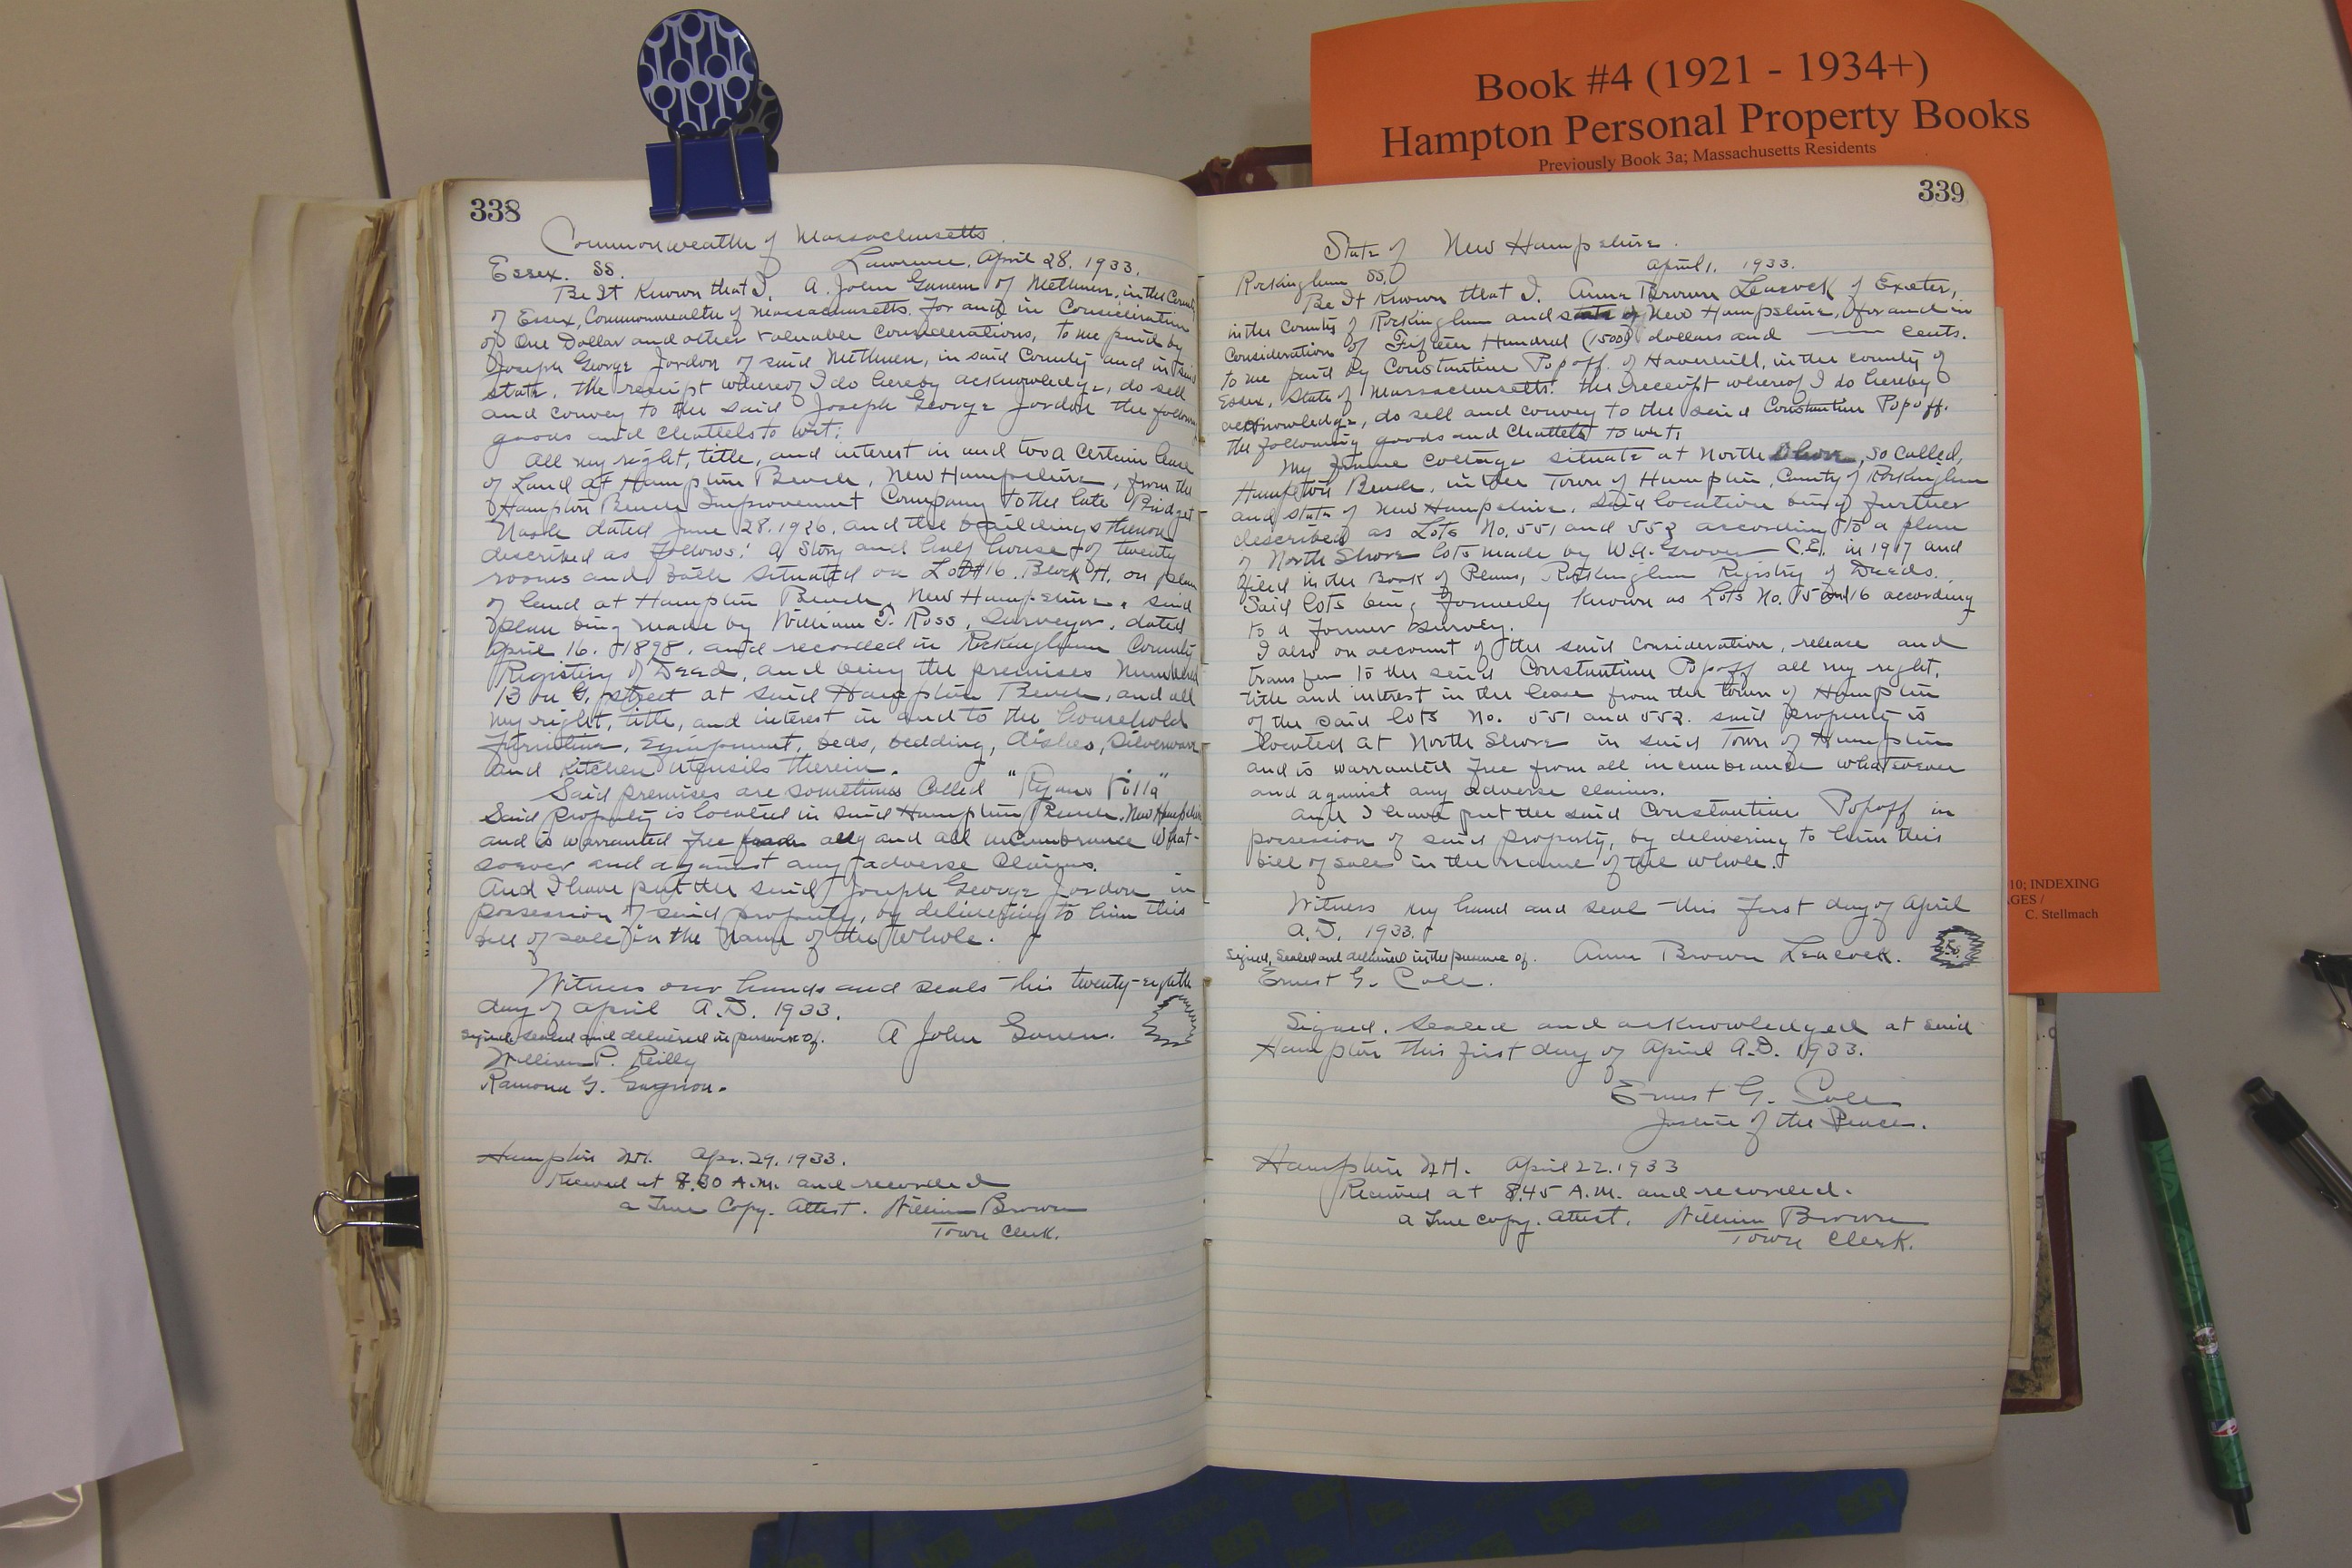 Book #4 (1921 - 1934+)
Hampton Personal Property Books
Previously Book 3a; Massachusetts Residents
10; INDEXING
AGES /
C. Stellmach
338
Commonwealth of Massachusetts.
Essex. SS. Lawrence, April 28, 1933.
Be It Known that I, A. John Ganem of Methuen, in the County
of Essex, Commonwealth of Massachusetts. For and in Consideration
of One Dollar and other valuable Considerations, to me paid by
Joseph George Jordon of said Methuen, in said County and in said
state, the receipt whereof I do hereby acknowledge, do sell
and convey to the said Joseph George Jordon the following
goods and chattels to wit:
All my right, title, and interest in and to a certain lease
of Land at Hampton Beach, New Hampshire, from the
Hampton Beach Improvement Company to the late Bridget
dated June 28. 1926. and the buildings thereon
described as follows: A Story and half house of twenty
rooms and bath situated on Lot #16. Block H. on plan
of land at Hampton Beach, New Hampshire, said
plan being made by William T. Ross, Surveyor, dated
April 16. 1898. and recorded in Rockingham County
Registry of Deed, and being the premises Numbered
13 on G. Street at said Hampton Beach, and all
my right, title, and interest in and to the household
Furniture, Equipment, beds, bedding, dishes, Silverware
and Kitchen Utensils therein.
Said premises are sometimes Called "Ryans Villa"
Said property is located in said Hampton Beach. New Hampshire
and is warranted free from any and all incumbrance What-
soever and against any adverse Claims.
And I have put the said Joseph George Jordon in
possession of said property, by delivering to him this
bill of sale in the Name of the Whole.
Witness our hands and seals this twenty-eighth
day of April A.D. 1933.
Signed, sealed and delivered in presence of. A John Ganem.
William P. Reilly
Ramona G. Gagnon.
Hampton N.H. Apr. 29. 1933.
Received at 8.30 A.M. and recorded
a True Copy. Attest. William Brown
Town Clerk.
339
State of New Hampshire.
Rockingham SS. April 1, 1933.
Be It Known that I. Anne Brown Leacock of Exeter,
in the County of Rockingham and state of New Hampshire, for and in
Consideration of Fifteen Hundred (1500) dollars and —— cents.
to me paid by Constantine Popoff. of Haverhill, in the county of
Essex, State of Massachusetts. the receipt whereof I do hereby
acknowledge, do sell and convey to the said Constantine Popoff.
the following goods and Chattels to wit:
My frame cottage situate at North Shore, so called,
Hampton Beach, in the Town of Hampton, County of Rockingham
and state of New Hampshire. Said location being further
described as Lots No. 551 and 552 according to a plan
of North Shore lots made by W.A. Grover C.E. in 1917 and
filed in the Book of Plans, Rockingham Registry of Deeds.
Said lots being formerly known as Lots No. 15 and 16 according
to a former survey.
I also on account of the said Consideration, release and
transfer to the said Constantine Popoff all my right,
title and interest in the lease from the town of Hampton
of the said lots No. 551 and 552. said property is
located at North Shore in said Town of Hampton
and is warranted free from all incumbrance whatsoever
and against any adverse claims.
And I have put the said Constantine Popoff in
possession of said property, by delivering to him this
bill of sale in the name of the whole.
Witness my hand and seal this first day of April
A.D. 1933.
Signed, Sealed and delivered in the presence of. Anne Brown Leacock.
Ernest G. Cole.
Signed. Sealed and acknowledged at said
Hampton this first day of April A.D. 1933.
Ernest G. Cole
Justice of the Peace.
Hampton N.H. April 22. 1933
Received at 8.45 A.M. and recorded.
a True copy. Attest. William Brown
Town Clerk.